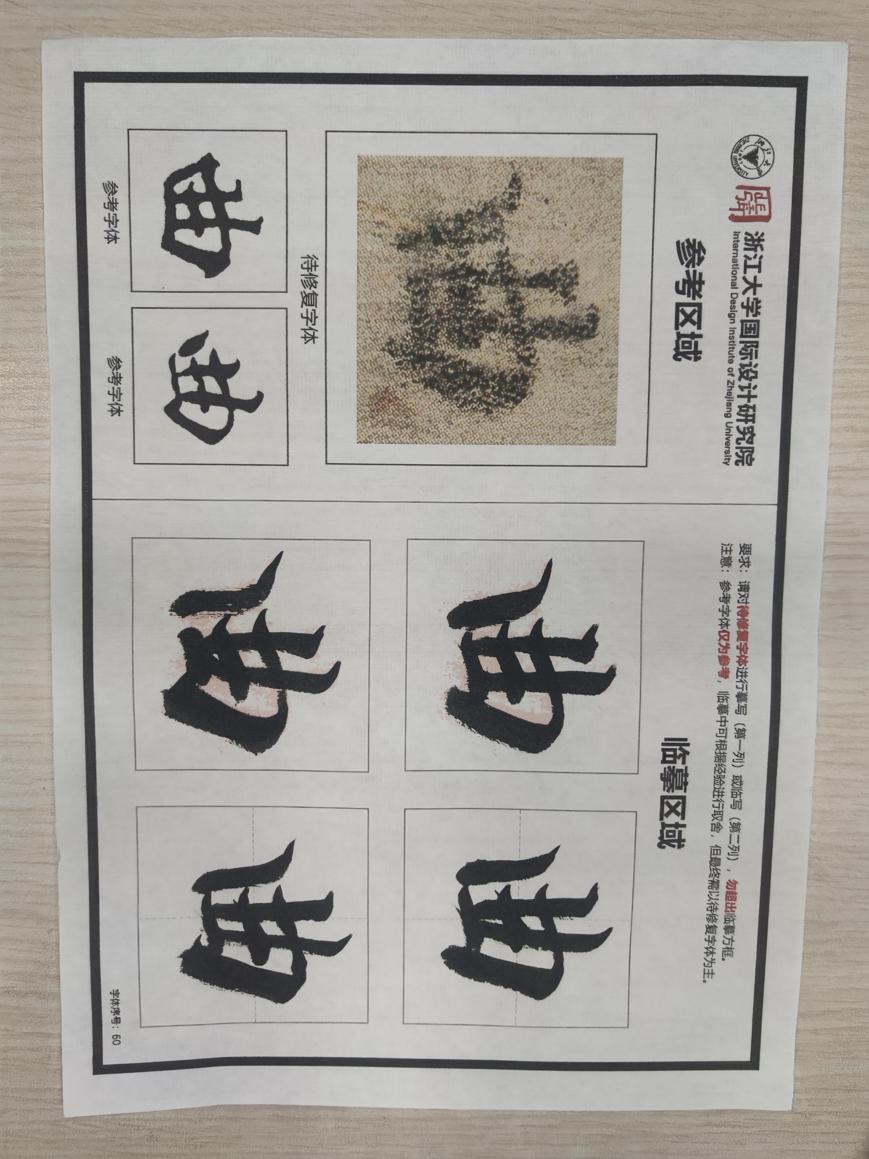 浙江大学国际设计研究院
International Design Institute of Zhejiang University
参考区域
曲
待修复字体
曲
曲
参考字体
参考字体
要求：请对待修复字体进行摹写（第一列）或临写（第二列），勿超出临摹方框。
注意：参考字体仅为参考，临摹中可根据经验进行取舍，但最终需以待修复字体为主。
临摹区域
曲
曲
曲
曲
字体序号：60